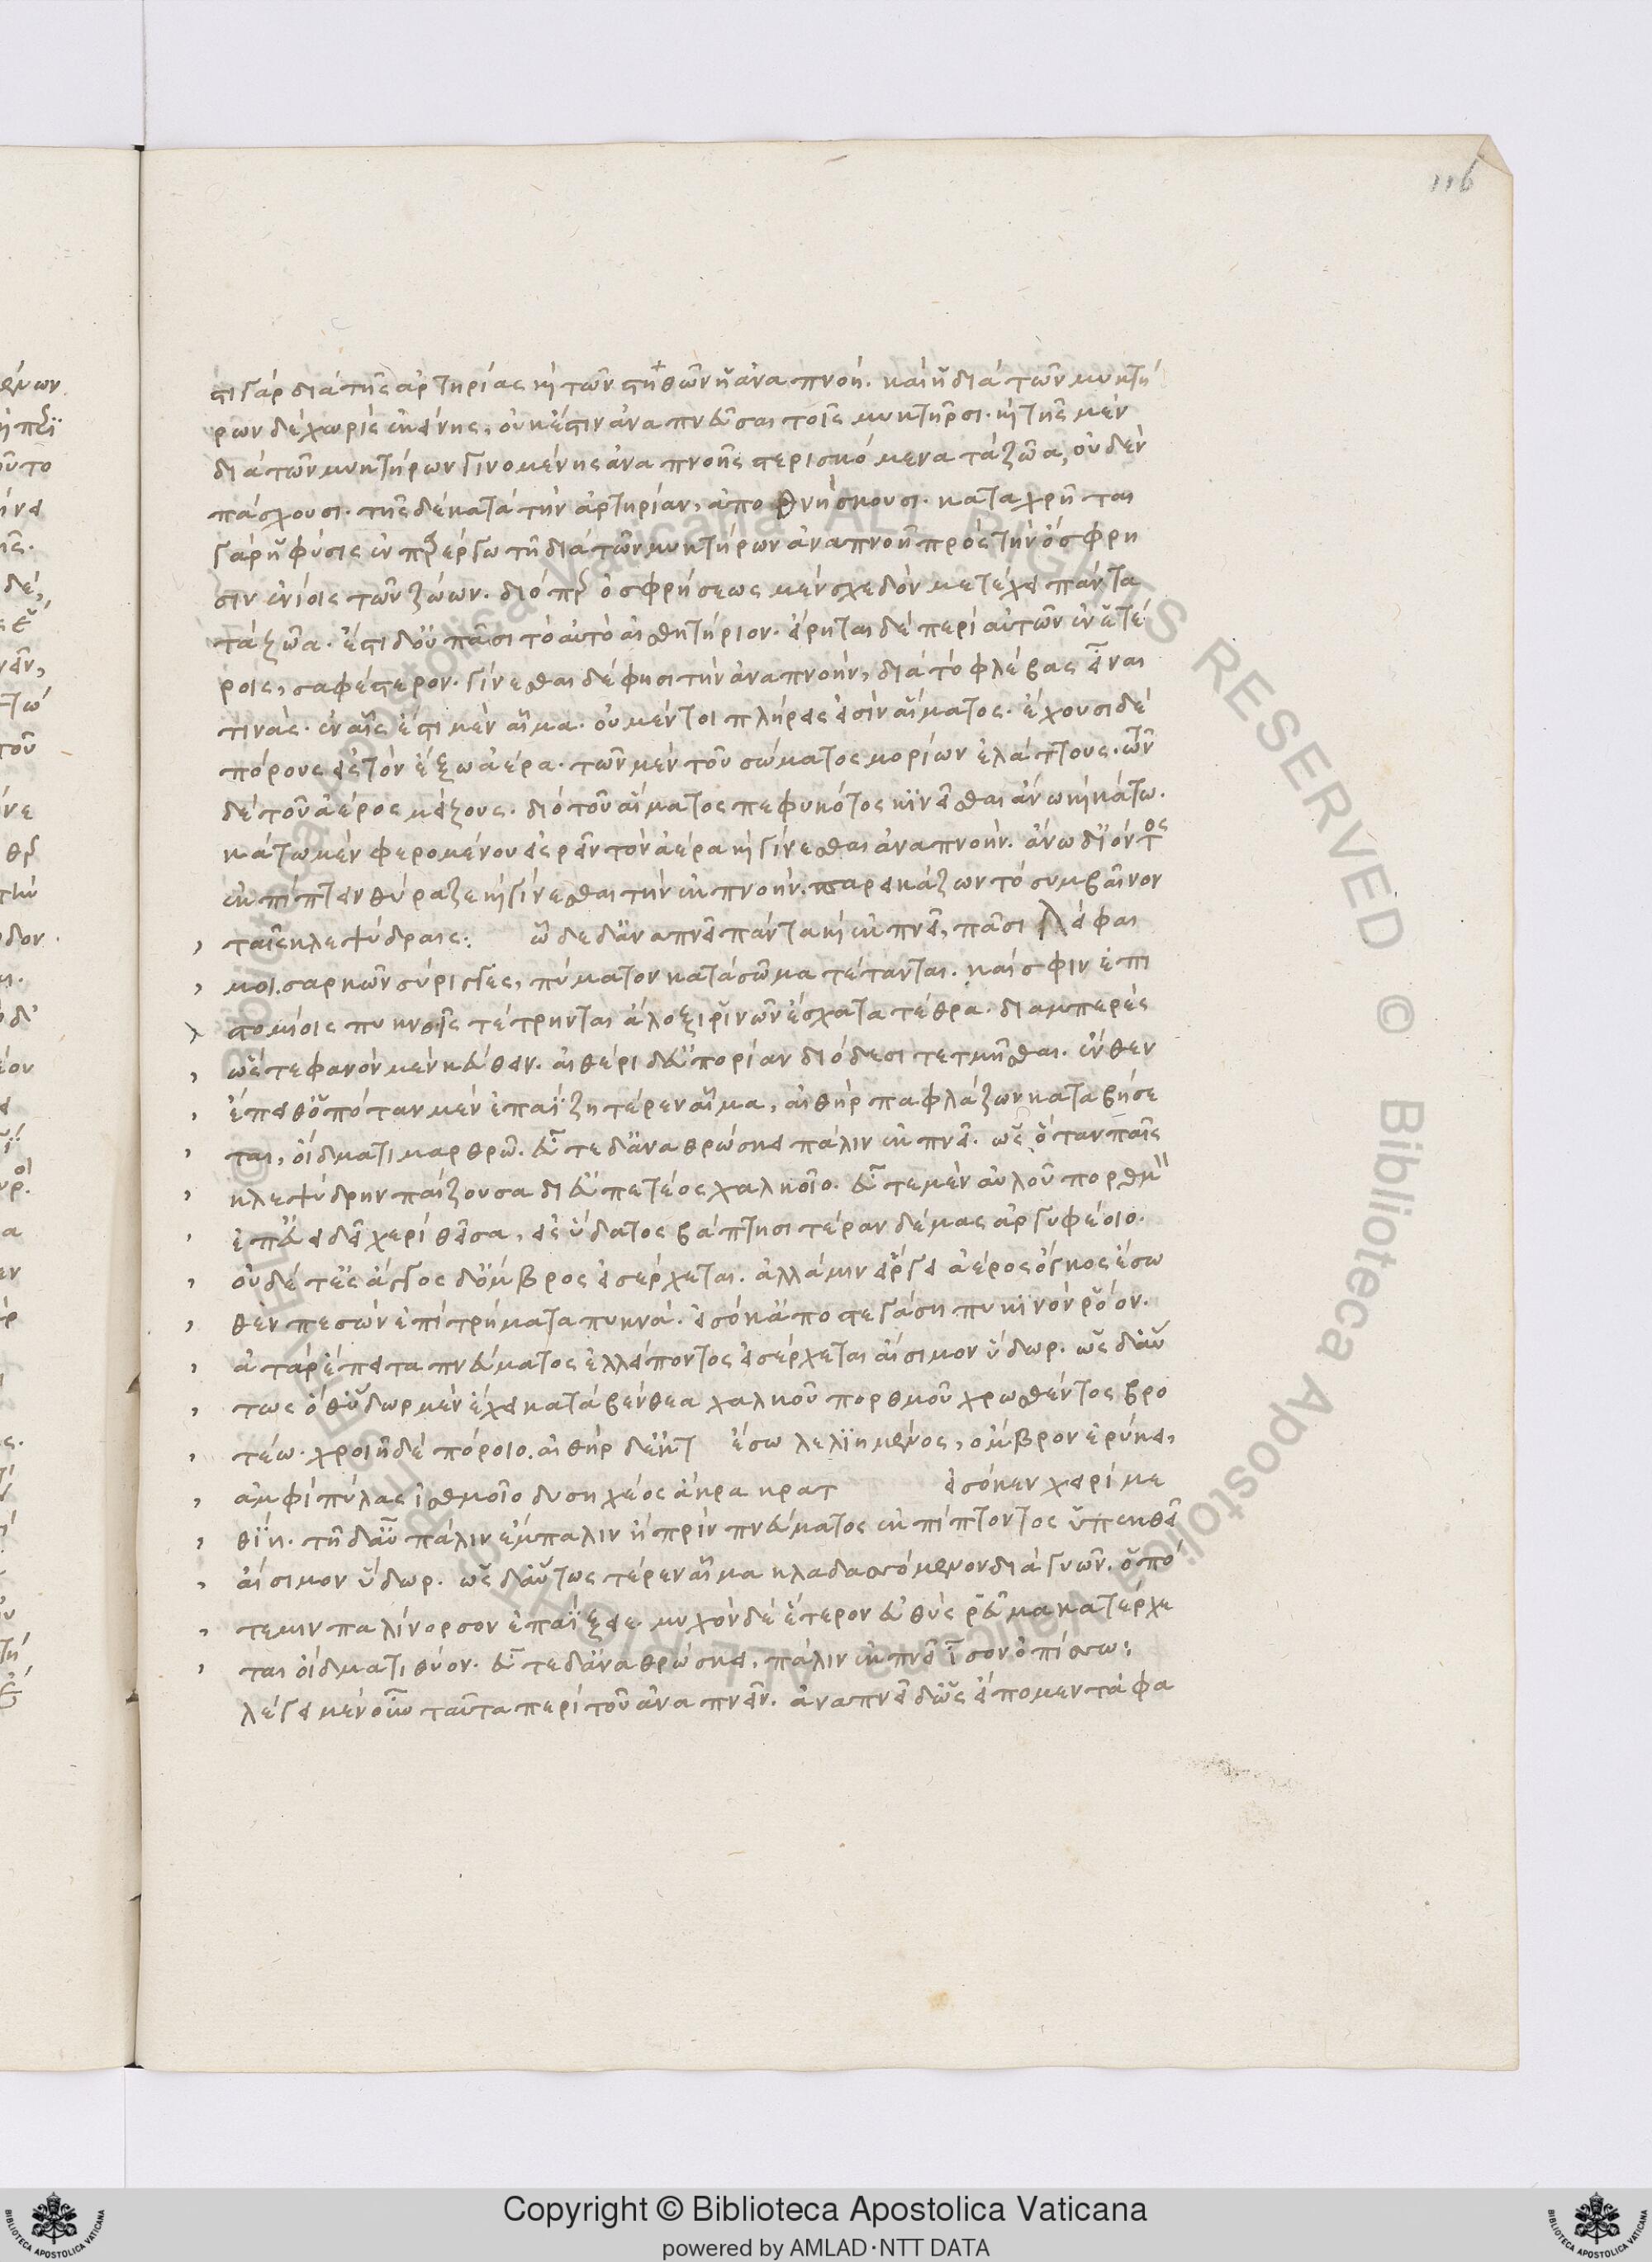 116
στι γὰρ διὰ τῆς ἀρτηρίας κὶ τῶν στηθῶν ἡ ἀναπνοή. καὶ ἡ διὰ τῶν μυκτή
ρων δὲ χωρὶς ἐκείνης, οὐκ ἔστιν ἀναπνεῦσαι τοῖς μυκτῆρσι. κὶ τῆς μὲν
διὰ τῶν μυκτήρων γινομένης ἀναπνοῆς στερισκόμενα τὰ ζῶα, οὐδὲν
πάσχουσι. τῆς δὲ κατὰ τὴν ἀρτηρίαν, ἀποθνήσκουσι. καταχρῆται
γὰρ ἡ φύσις ἐν παρέργω τῆ διὰ τῶν μυκτήρων ἀναπνοῆ πρὸς τὴν ὄσφρη
σιν ἐνίοις τῶν ζώων. διόπερ ὀσφρήσεως μὲν σχεδὸν μετέχει πάντα
τὰ ζῶα. ἔστι δ' οὐ πᾶσι τὸ αὐτὸ αἰσθητήριον. εἴρηται δὲ περὶ αὐτῶν ἐν ἑτέ
ροις, σαφέστερον. γίνεσθαι δέ φησι τὴν ἀναπνοὴν, διὰ τὸ φλέβας εἶναι
τινὰς. ἐν αἷς ἔστι μὲν αἷμα. οὐ μέντοι πλήρεις εἰσὶν αἵματος. ἔχουσι δὲ
πόρους εἰς τὸν ἔξω ἀέρα. τῶν μὲν τοῦ σώματος μορίων ἐλάττους. τῶν
δὲ τοῦ ἀέρος μείζους. διὸ τοῦ αἵματος πεφυκότος κινεῖσθαι ἄνω κὶ κάτω.
κάτω μὲν φερομένου εἰσρεῖν τὸν ἀέρα κὶ γίνεσθαι ἀναπνοήν. ἄνω δ' ἰόντος
ἐκπίπτειν θύραζε κὶ γίνεσθαι τὴν ἐκπνοήν. παρεικάζων τὸ συμβαῖνον
ταῖς κλεψύδραις: ὧδε δ' ἀναπνεῖ πάντα κὶ ἐκπνεῖ, πᾶσι λείφαι
μοι σαρκῶν σύριγγες, πύματον κατὰ σῶμα τέτανται. καί σφιν ἐπι
στομίοις πυκνοῖς τέτρηνται ἄλοξι ῥινῶν ἔσχατα τέθρα. διαμπερὲς
ὥστε φανὸν μὲν κεύθειν. αἰθέρι δ' εὐπορίαν διόδεσι τετμῆσθαι. ἔνθεν
ἔπειθ' ὁπόταν μὲν ἐπαΐζη τέρεν αἷμα, αἰθὴρ παφλάζων καταβήσε
ται, οἴδματι μαργρῶ. εὖτε δ' ἀναθρώσκει πάλιν ἐκπνεῖ. ὡς ὅταν παῖς
κλεψύδρην παίζουσα δι' εὐπετέος χαλκοῖο. εὖτε μὲν αὐλοῦ πορθμ
ἐπ' εὐειδεῖ χερὶ θεῖσα, εἰς ὕδατος βάπτησι τέραν δέμας ἀργυφέοιο.
οὐδέ τ' ἐς ἄγγος δ' ὄμβρος εἰσέρχεται. ἀλλά μιν εἴργει ἀέρος ὄγκος ἔσω
θεν πεσὼν ἐπὶ τρήματα πυκνά. εἰσόκ' ἀποστεγάση πυκινὸν ῥόον.
ἀτὰρ ἔπειτα πνεύματος ἐλλείποντος εἰσέρχεται αἴσιμον ὕδωρ. ὣς δ' αὔ
τως ὅθ' ὕδωρ μὲν ἔχει κατὰ βένθεα χαλκοῦ πορθμοῦ χρωσθέντος βρο
τέω. χροιῆδὲ πόροιο. αἰθὴρ δ' ἐκτ ἔσω λελιημένος, ὄμβρον ἐρύκει,
ἀμφὶ πύλας ἰσθμοῖο δυσηχέος ἄκρα κρατ εἰσόκεν χειρὶ με
θίη. τῆ δ' αὖ πάλιν ἔμπαλιν ἢ πρὶν πνεύματος ἐκπίπτοντος ὑπεκθεῖ
αἴσιμον ὕδωρ. ὣς δ' αὔτως τέρεν αἷμα κλαδασσόμενον διὰ γυῶν. ὁππό
τε μιν παλίνορσον ἐπαΐξειε μυχὸν δὲ ἕτερον εὐθὺς ῥεῦμα κατέρχε
ται οἴδματι θῦον. εὖτε δ' ἀναθρώσκει, πάλιν ἐκπνεῖ ἶσον ὀπίσσω:
λέγει μὲν οὖν ταῦτα περὶ τοῦ ἀναπνεῖν. ἀναπνεῖ δ' ὡς εἴπομεν τὰ φα
Copyright © Biblioteca Apostolica Vaticana
powered by AMLAD·NTT DATA